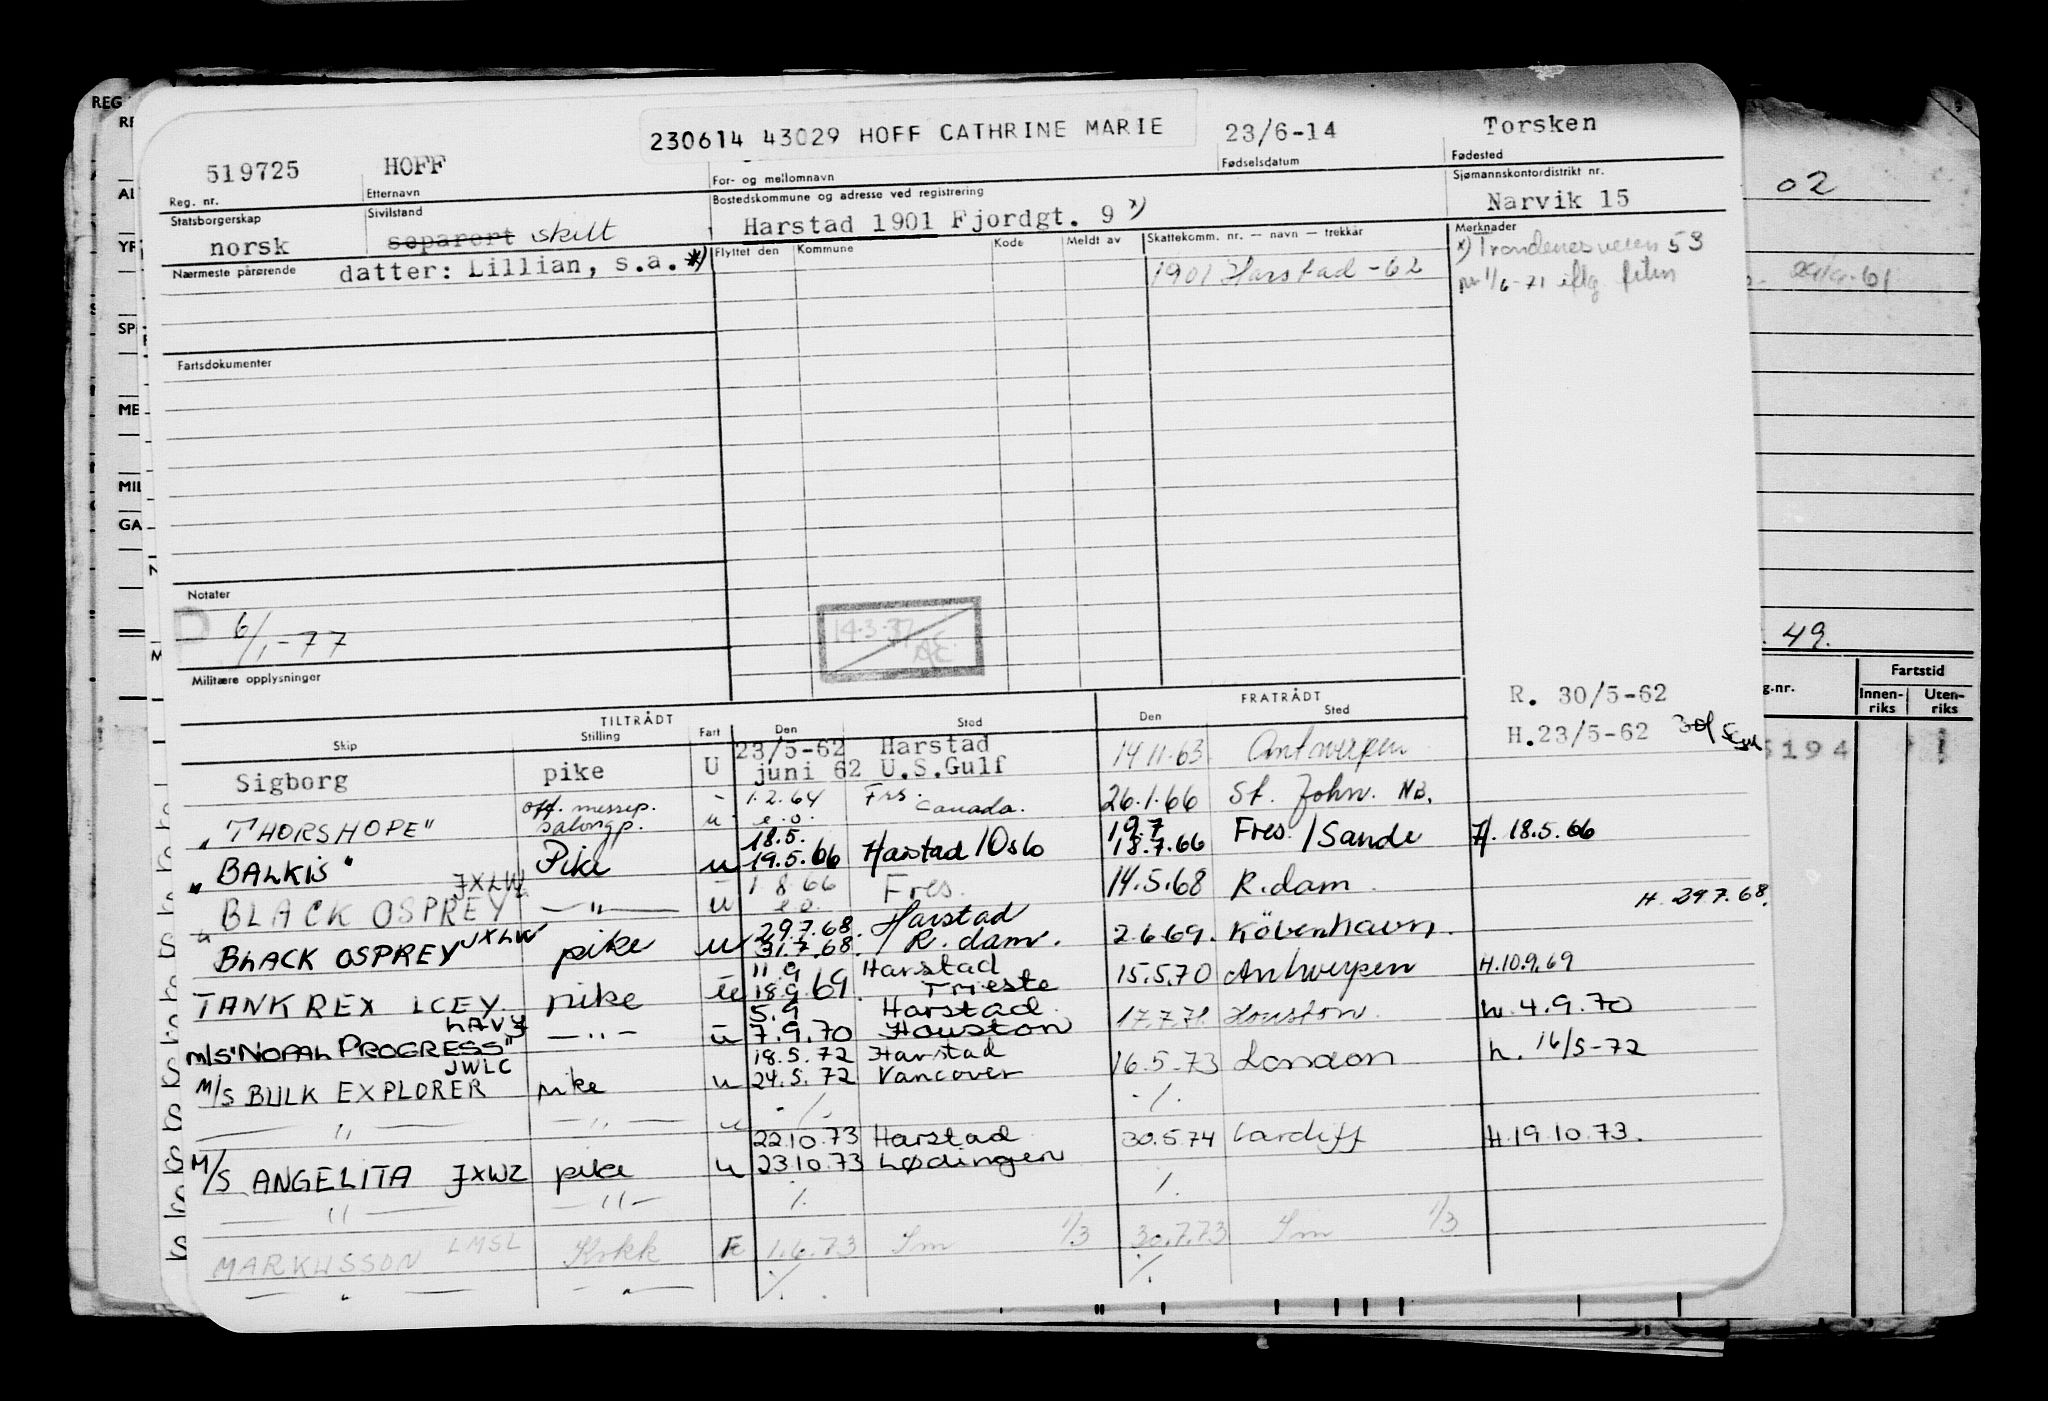 230614 43029 HOFF CATHRINE MARIE
23/6-14 Torsken
519725 HOFF
Reg. nr. Etternavn For- og mellomnavn Fødselsdatum Fødested
Statsborgerskap Sivilstand Bostedskommune og adresse ved registrering Sjømannskontordistrikt nr.
norsk separert skilt Harstad 1901 Fjordgt. 9 x) Narvik 15
Nærmeste pårørende Flyttet den Kommune Kode Meldt av Skattekomm. nr. — navn — trekkår Merknader
datter: Lillian, s.a. x) 1901 Harstad -62 x) Trondenesveien 53
pr 1/6-71 iflg.
Fartsdokumenter
Notater
6/1-77
14.3.77
Militære opplysninger
TILTRÅDT FRATRÅDT R. 30/5-62
Skip Stilling Fart Den Sted Den Sted
23/5-62 Harstad H.23/5-62
Sigborg pike U juni 62 U.S.Gulf 14.11.63 Antwerpen
off. messep. 1.2.64 Frs. Canada.
"THORSHOPE" salongp. u e.o. 26.1.66 St. John. NB.
18.5. 19.7
"BALKIS" Pike u 19.5.66 Harstad/Oslo 18.7.66 Fres./Sande H. 18.5.66
JXLW
BLACK OSPREY —"— u 1.8.66 e.o. Fres. 14.5.68 R.dam.
29.7.68. Harstad H. 29.7.68.
BLACK OSPREY JXLW pike u 31.7.68. R.dam. 2.6.69. København.
11.9 Harstad
TANK REX LCEY. pike u 18.9.69. Trieste 15.5.70 Antwerpen H.10.9.69
LAVY 5.9 Harstad
M/S "NOPAL PROGRESS" —"— u 7.9.70 Houston 17.7.71. Houston. h. 4.9.70
JWLC 18.5.72 Harstad
M/S BULK EXPLORER pike u 24.5.72 Vancover 16.5.73 London h. 16/5-72
—"— —"— u -/- ./.
22.10.73 Harstad
M/S ANGELITA JXWZ pike u 23.10.73 Lødingen 30.5.74 Cardiff H.19.10.73.
—"— —"— ./. ./.
MARKUSSON LMSL Kokk F 1.6.73 Sm 1/3 30.7.73 Sm 1/3
—"— —"— ./. ./.
REG
02
49.
Fartstid
g.nr. Innen-riks Uten-riks
5194
SP
ME
MIL
GA